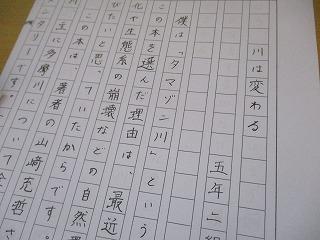 川は変わる
五年二組
僕は「タマゾン川」という
この本を選んだ理由は、最近
化や生態系の崩壊などの自然
びたいと思っていたからです。
この本は、著者の山崎充哲さ
主に多摩川について
ンタリーです。